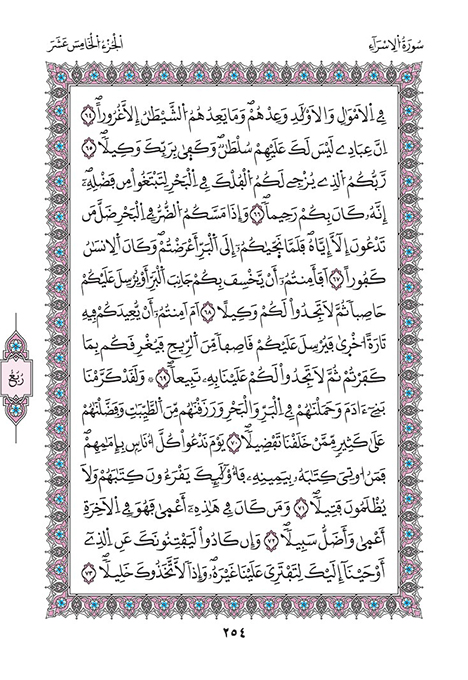 سُورَةُ الإِسْرَاءِ
الجُزْءُ الخَامِسَ عَشَرَ
فِے اِ۬لَامْوَٰلِ وَالَاوْلَٰدِ وَعِدْهُمْۖ وَمَا يَعِدُهُمُ اُ۬لشَّيْطَٰنُ إِلَّا غُرُوراًۖ ٦٤
اِنَّ عِبَادِے لَيْسَ لَكَ عَلَيْهِمْ سُلْطَٰنٞۖ وَكَفَىٰ بِرَبِّكَ وَكِيلاٗۖ ٦٥
رَّبُّكُمُ اُ۬لذِے يُزْجِے لَكُمُ اُ۬لْفُلْكَ فِے اِ۬لْبَحْرِ لِتَبْتَغُواْ مِن فَضْلِهِۦٓۖ
إِنَّهُۥ كَانَ بِكُمْ رَحِيماٗۖ ٦٦ وَإِذَا مَسَّكُمُ اُ۬لضُّرُّ فِے اِ۬لْبَحْرِ ضَلَّ مَن
تَدْعُونَ إِلَّآ إِيَّاهُۖ فَلَمَّا نَجَّيٰكُمُۥٓ إِلَى اَ۬لْبَرِّ أَعْرَضْتُمْۖ وَكَانَ اَ۬لِانسَٰنُ
كَفُوراًۖ ٦٧ اَفَأَمِنتُمُۥٓ أَنْ يَّخْسِفَ بِكُمْ جَانِبَ اَ۬لْبَرِّ أَوْ يُرْسِلَ عَلَيْكُمْ
حَاصِباٗ ثُمَّ لَا تَجِدُواْ لَكُمْ وَكِيلاًۖ ٦٨ اَمَ اَمِنتُمُۥٓ أَنْ يُّعِيدَكُمْ فِيهِ
تَارَةً اُخْرَىٰ فَيُرْسِلَ عَلَيْكُمْ قَاصِفاٗ مِّنَ اَ۬لرِّيحِ فَيُغْرِقَكُم بِمَا
كَفَرْتُمْ ثُمَّ لَا تَجِدُواْ لَكُمْ عَلَيْنَا بِهِۦ تَبِيعاٗۖ ٦٩ ۞ وَلَقَدْ كَرَّمْنَا
بَنِےٓ ءَادَمَ وَحَمَلْنَٰهُمْ فِے اِ۬لْبَرِّ وَالْبَحْرِ وَرَزَقْنَٰهُم مِّنَ اَ۬لطَّيِّبَٰتِ وَفَضَّلْنَٰهُمْ
عَلَىٰ كَثِيرٖ مِّمَّنْ خَلَقْنَا تَفْضِيلاٗۖ ٧٠ يَوْمَ نَدْعُواْ كُلَّ أُنَاسِۢ بِإِمَٰمِهِمْۖ
فَمَنُ اوتِيَ كِتَٰبَهُۥ بِيَمِينِهِۦ فَأُوْلَٰٓئِكَ يَقْرَءُونَ كِتَٰبَهُمْ وَلَا
يُظْلَمُونَ فَتِيلاٗۖ ٧١ وَمَن كَانَ فِے هَٰذِهِۦٓ أَعْمَىٰ فَهُوَ فِے اِ۬لَاخِرَةِ
أَعْمَىٰ وَأَضَلُّ سَبِيلاٗۖ ٧٢ وَإِن كَادُواْ لَيَفْتِنُونَكَ عَنِ اِ۬لذِےٓ
أَوْحَيْنَآ إِلَيْكَ لِتَفْتَرِيَ عَلَيْنَا غَيْرَهُۥۖ وَإِذاٗ لَّاتَّخَذُوكَ خَلِيلاٗۖ ٧٣
رُبُعُ
٢٥٤